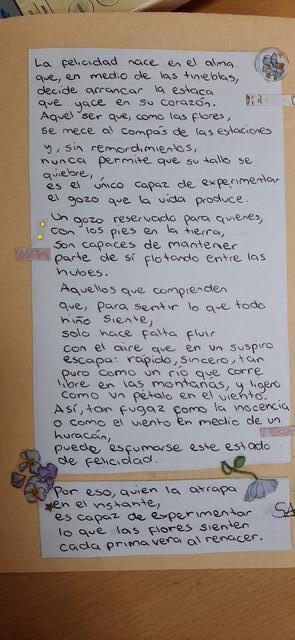 La felicidad nace en el alma
que, en medio de las tinieblas,
decide arrancar la estaca
que yace en su corazón.
Aquel ser que, como las flores,
se mece al compás de las estaciones
y, sin remordimientos,
nunca permite que su tallo se
quiebre,
es el único capaz de experimentar
el gozo que la vida produce.
Un gozo reservado para quienes,
con los pies en la tierra,
son capaces de mantener
parte de sí flotando entre las
nubes.
Aquellos que comprenden
que, para sentir lo que todo
niño siente,
solo hace falta fluir
con el aire que en un suspiro
escapa: rápido, sincero, tan
puro como un río que corre
libre en las montañas, y ligero
como un pétalo en el viento.
Así, tan fugaz como la inocencia
o como el viento en medio de un
huracán,
puede esfumarse este estado
de felicidad.
Por eso, quien la atrapa
en el instante,
es capaz de experimentar
lo que las flores sienten
cada primavera al renacer.